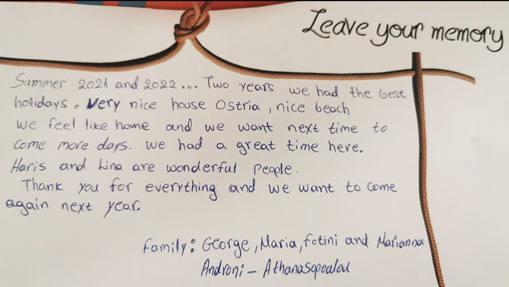 Leave your memory
Summer 2021 and 2022... Two years we had the best
holidays. Very nice house Ostria, nice beach
we feel like home and we want next time to
come more days. we had a great time here.
Haris and Lina are wonderful people.
Thank you for everything and we want to come
again next year.
Family: George, Maria, Fotini and Marianna
Androni - Athanasopoulou